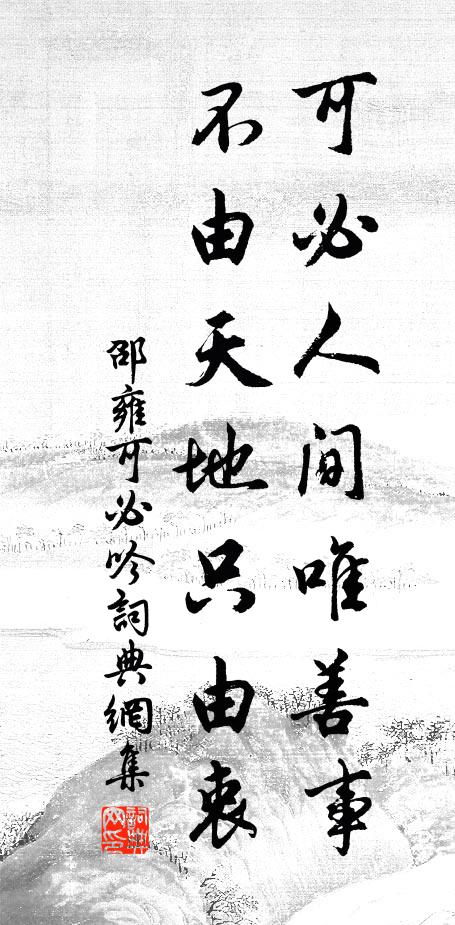 可必人間唯善事
不由天地只由衷
邵雍可必吟詞典網集